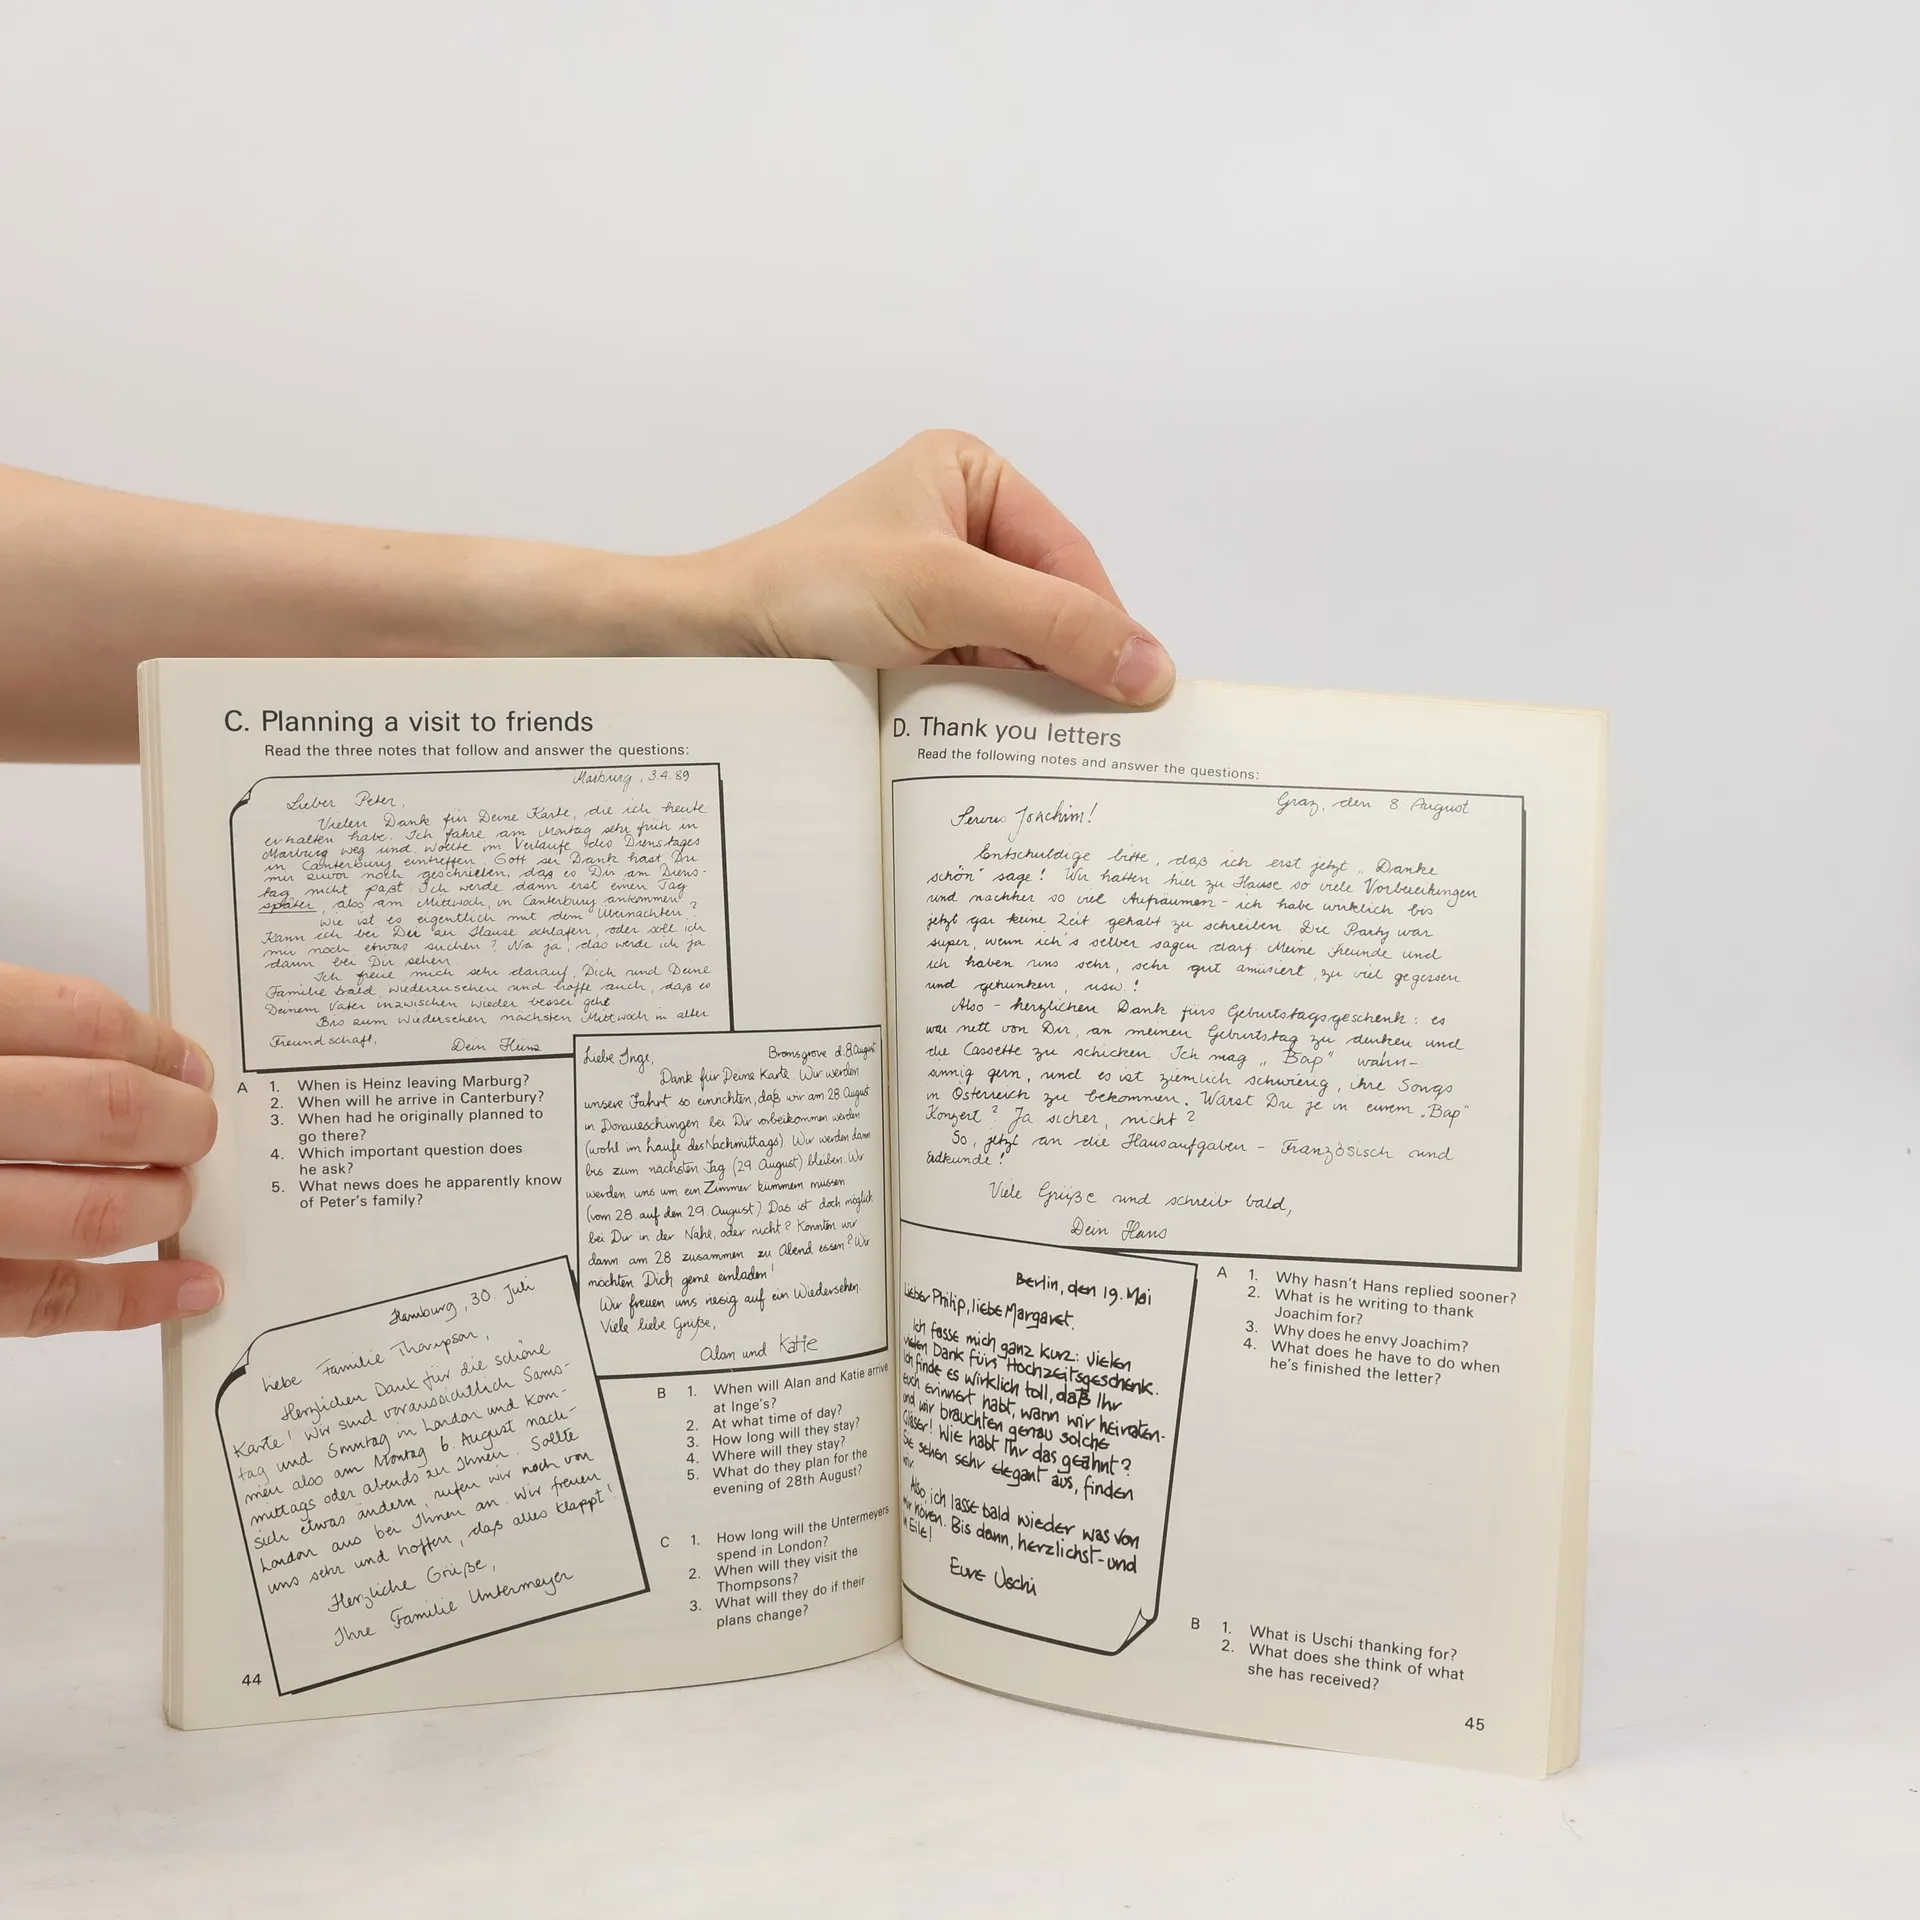 C. Planning a visit to friends
Read the three notes that follow and answer the questions:
Marburg, 3.4.89
Lieber Peter,
Vielen Dank für Deine Karte, die ich heute
erhalten habe. Ich fahre am Montag sehr früh in
Marburg weg und wollte im Verlaufe des Dienstages
in Canterbury eintreffen. Gott sei Dank hast Du
mir zuvor noch geschrieben, daß es Dir am Diens-
tag nicht paßt. Ich werde dann erst einen Tag
später, also am Mittwoch, in Canterbury ankommen.
Wie ist es eigentlich mit dem Übernachten?
Kann ich bei Dir zu Hause schlafen, oder soll ich
mir noch etwas suchen? Na ja, das werde ich ja
dann bei Dir sehen.
Ich freue mich sehr darauf, Dich und Deine
Familie bald wiederzusehen und hoffe auch, daß es
Deinem Vater inzwischen wieder besser geht.
Bis zum Wiedersehen nächsten Mittwoch in aller
Freundschaft,
Dein Heinz
A 1. When is Heinz leaving Marburg?
2. When will he arrive in Canterbury?
3. When had he originally planned to
go there?
4. Which important question does
he ask?
5. What news does he apparently know
of Peter's family?
Bromsgrove d. 8. August
Liebe Inge,
Dank für Deine Karte. Wir werden
unsere Fahrt so einrichten, daß wir am 28. August
in Donaueschingen bei Dir vorbeikommen werden
(wohl im Laufe des Nachmittags). Wir werden dann
bis zum nächsten Tag (29. August) bleiben. Wir
werden uns um ein Zimmer kümmern müssen
(vom 28. auf den 29. August). Das ist doch möglich
bei Dir in der Nähe, oder nicht? Könnten wir
dann am 28. zusammen zu Abend essen? Wir
möchten Dich gerne einladen!
Wir freuen uns riesig auf ein Wiedersehen.
Viele liebe Grüße,
Alan und Katie
B 1. When will Alan and Katie arrive
at Inge's?
2. At what time of day?
3. How long will they stay?
4. Where will they stay?
5. What do they plan for the
evening of 28th August?
Hamburg, 30 Juli
Liebe Familie Thompson,
Herzlichen Dank für die schöne
Karte! Wir sind voraussichtlich Sams-
tag und Sonntag in London und kom-
men also am Montag 6. August nach-
mittags oder abends zu Ihnen. Sollte
sich etwas ändern, rufen wir noch von
London aus bei Ihnen an. Wir freuen
uns sehr und hoffen, daß alles klappt!
Herzliche Grüße,
Ihre Familie Untermeyer
C 1. How long will the Untermeyers
spend in London?
2. When will they visit the
Thompsons?
3. What will they do if their
plans change?
44
D. Thank you letters
Read the following notes and answer the questions:
Graz, den 8. August
Servus Joachim!
Entschuldige bitte, daß ich erst jetzt „Danke
schön" sage! Wir hatten hier zu Hause so viele Vorbereitungen
und nachher so viel Aufräumen - ich habe wirklich bis
jetzt gar keine Zeit gehabt zu schreiben. Die Party war
super, wenn ich's selber sagen darf. Meine Freunde und
ich haben uns sehr, sehr gut amüsiert, zu viel gegessen
und getrunken, usw.!
Also - herzlichen Dank fürs Geburtstagsgeschenk: es
war nett von Dir, an meinen Geburtstag zu denken und
die Cassette zu schicken. Ich mag „Bap" wahn-
sinnig gern, und es ist ziemlich schwierig, ihre Songs
in Österreich zu bekommen. Warst Du je in einem „Bap"
Konzert? Ja sicher, nicht?
So, jetzt an die Hausaufgaben - Französisch und
Erdkunde!
Viele Grüße und schreib bald,
Dein Hans
A 1. Why hasn't Hans replied sooner?
2. What is he writing to thank
Joachim for?
3. Why does he envy Joachim?
4. What does he have to do when
he's finished the letter?
Berlin, den 19. Mai
Lieber Philip, liebe Margaret,
Ich fasse mich ganz kurz: vielen
vielen Dank fürs Hochzeitsgeschenk.
Ich finde es wirklich toll, daß Ihr
Euch erinnert habt, wann wir heiraten -
und wir brauchten genau solche
Gläser! Wie habt Ihr das geahnt?
Sie sehen sehr elegant aus, finden
wir.
Also, ich lasse bald wieder was von
mir hören. Bis dann, herzlichst - und
in Eile!
Eure Uschi
B 1. What is Uschi thanking for?
2. What does she think of what
she has received?
45